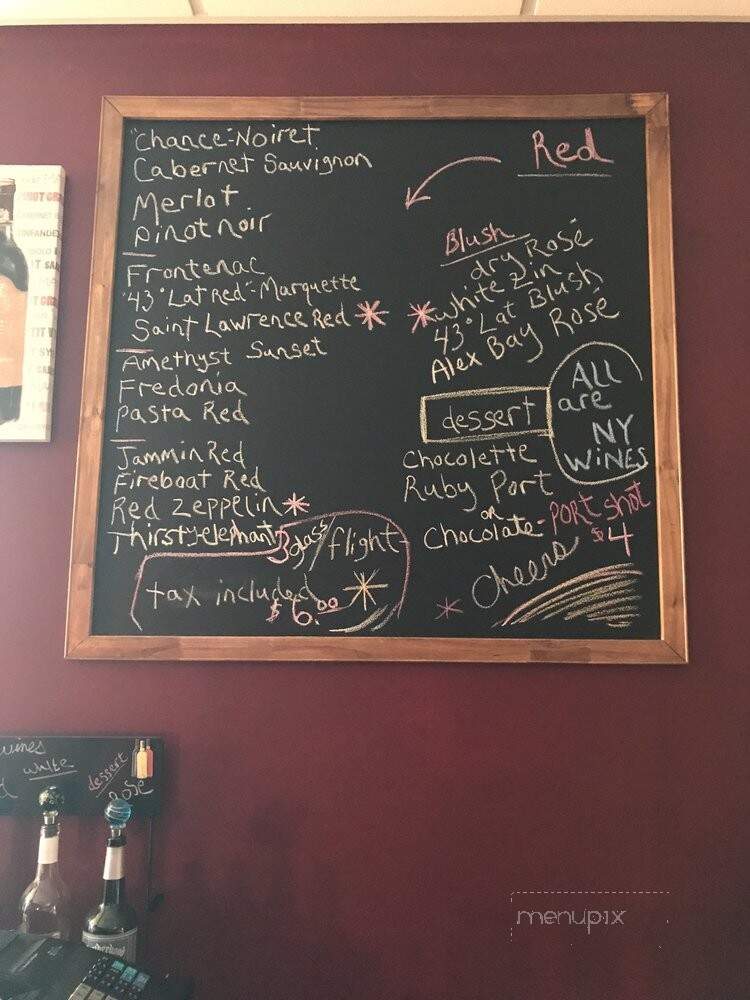 "Chance"-Noiret
Cabernet Sauvignon
Merlot
pinot noir
Frontenac
"43° Lat Red"-Marquette
Saint Lawrence Red *
Amethyst Sunset
Fredonia
pasta Red
Jammin Red
Fireboat Red
Red Zeppelin *
Thirsty elephant
3 glass/flight
tax included
$6.00
Red
Blush
dry Rosé
*White Zin
43° Lat Blush
Alex Bay Rosé
dessert
ALL
are
NY
WINES
Chocolette
Ruby Port
or
Chocolate - PORT SHOT
$4
* Cheers
wines
white
dessert
Rosé
menupix